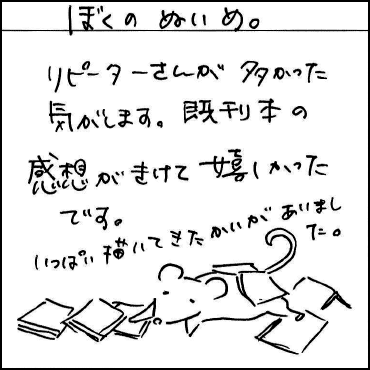 ぼくの ぬいめ。
リピーターさんが 多かった
気がします。既刊本の
感想がきけて 嬉しかった
です。
いっぱい描いてきたかいがありまし
た。